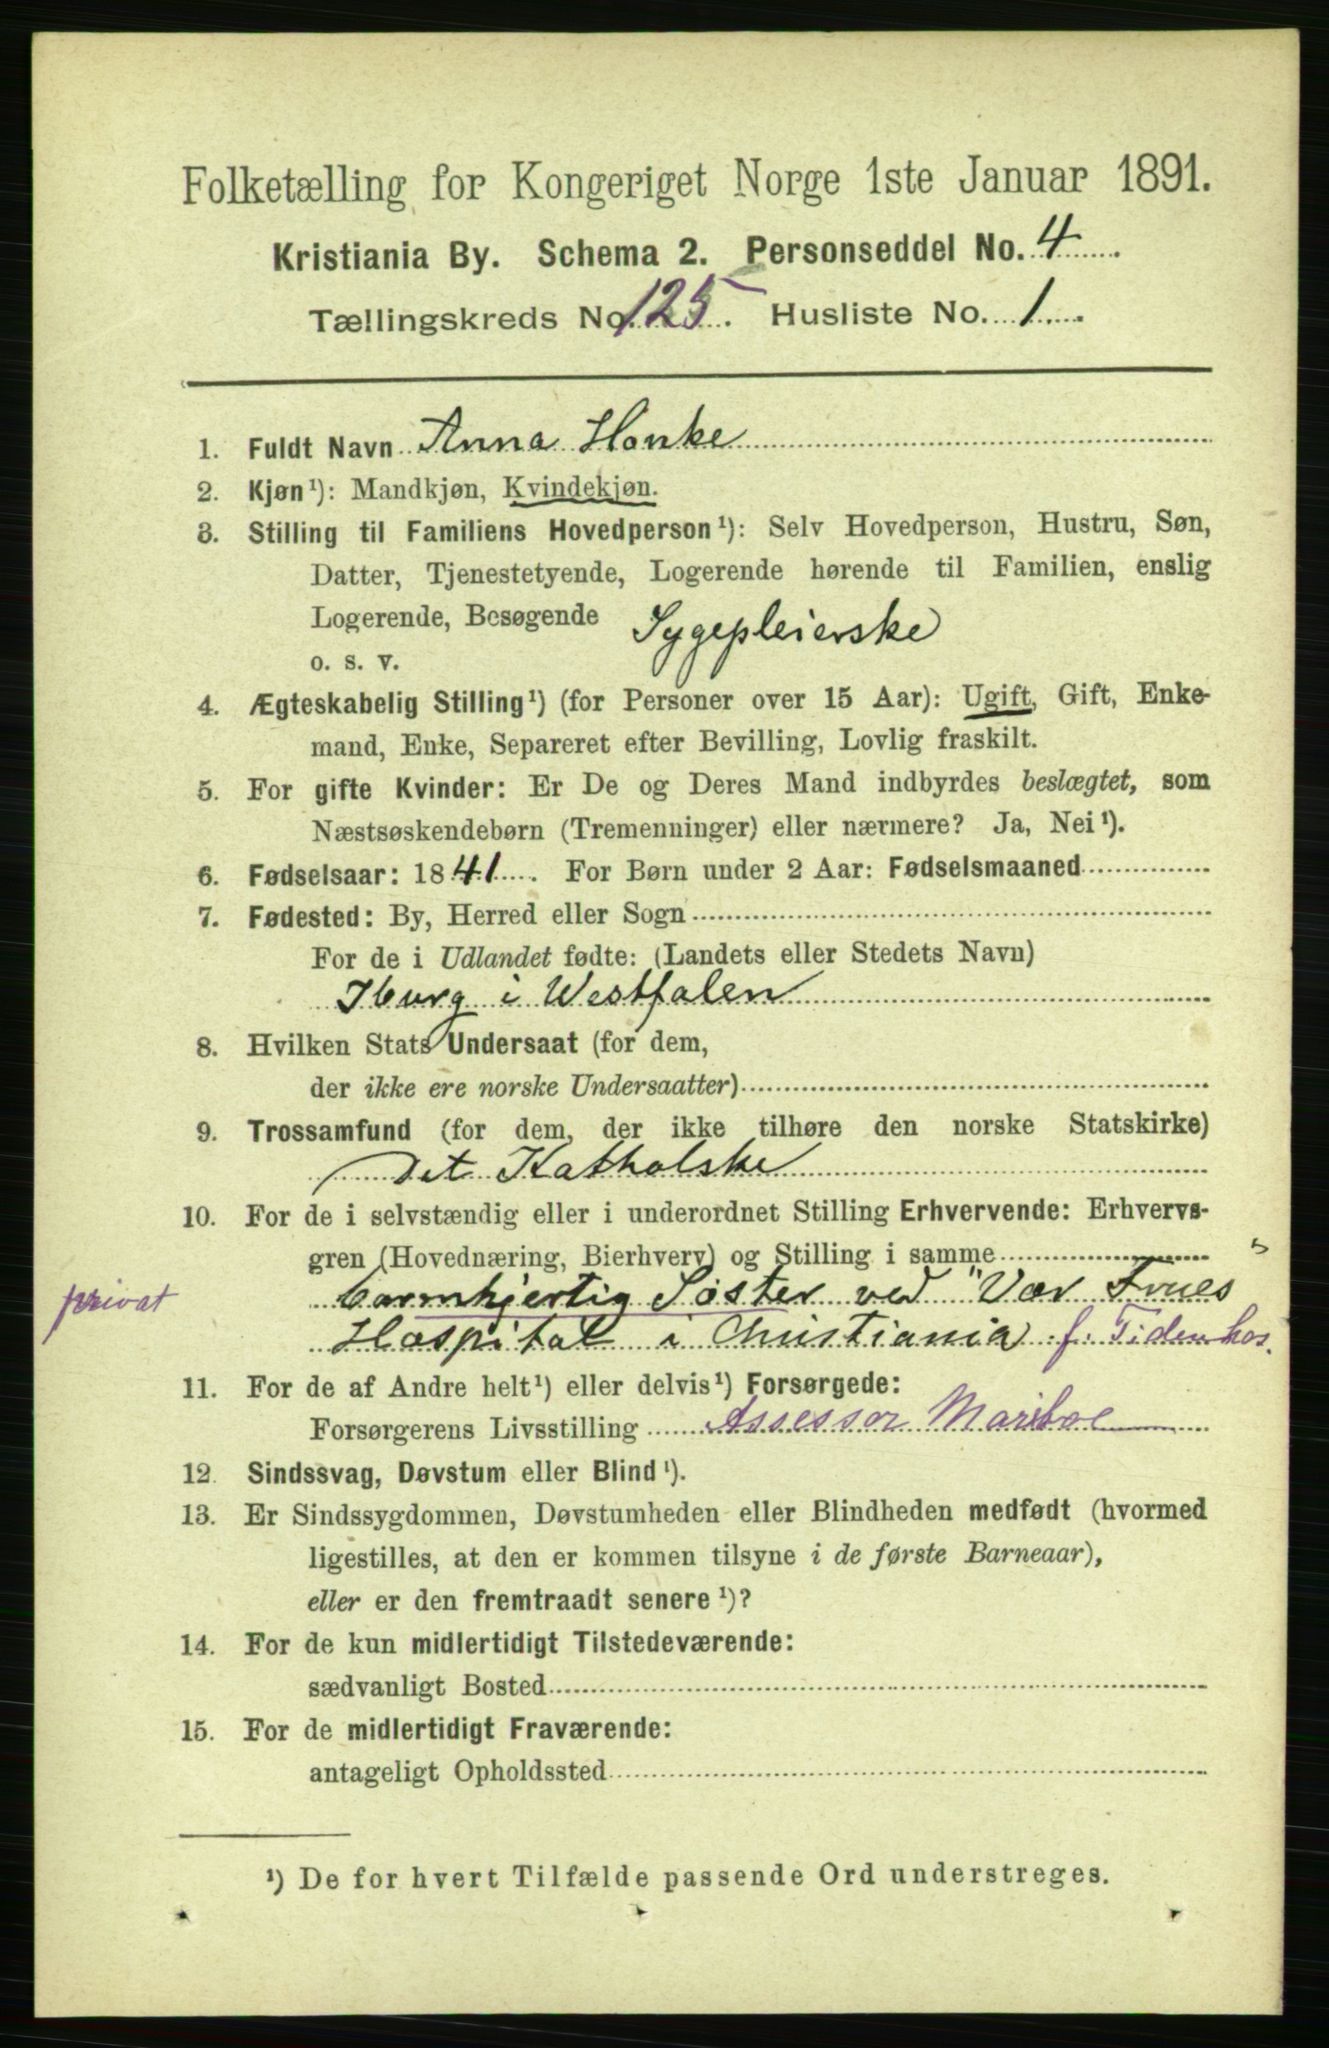 Folketælling for Kongeriget Norge 1ste Januar 1891.
Kristiania By. Schema 2. Personseddel No. 4
Tællingskreds No. 125. Husliste No. 1
1. Fuldt Navn Anna Honke
2. Kjøn¹): Mandkjøn, Kvindekjøn.
3. Stilling til Familiens Hovedperson¹): Selv Hovedperson, Hustru, Søn,
Datter, Tjenestetyende, Logerende hørende til Familien, enslig
Logerende, Besøgende Sygepleierske
o. s. v.
4. Ægteskabelig Stilling¹) (for Personer over 15 Aar): Ugift, Gift, Enke-
mand, Enke, Separeret efter Bevilling, Lovlig fraskilt.
5. For gifte Kvinder: Er De og Deres Mand indbyrdes beslægtet, som
Næstsøskendebørn (Tremenninger) eller nærmere? Ja, Nei¹).
6. Fødselsaar: 1841. For Børn under 2 Aar: Fødselsmaaned
7. Fødested: By, Herred eller Sogn
For de i Udlandet fødte: (Landets eller Stedets Navn)
Iburg i Westfalen
8. Hvilken Stats Undersaat (for dem,
der ikke ere norske Undersaatter)
9. Trossamfund (for dem, der ikke tilhøre den norske Statskirke)
Det Katholske
10. For de i selvstændig eller i underordnet Stilling Erhvervende: Erhvervs-
gren (Hovednæring, Bierhverv) og Stilling i samme
privat barmhjertig Søster ved "Vor Frues"
Hospital i Christiania f. Tiden hos
11. For de af Andre helt¹) eller delvis¹) Forsørgede:
Forsørgerens Livsstilling Assessor Mariboe
12. Sindssvag, Døvstum eller Blind¹).
13. Er Sindssygdommen, Døvstumheden eller Blindheden medfødt (hvormed
ligestilles, at den er kommen tilsyne i de første Barneaar),
eller er den fremtraadt senere¹)?
14. For de kun midlertidigt Tilstedeværende:
sædvanligt Bosted
15. For de midlertidigt Fraværende:
antageligt Opholdssted
¹) De for hvert Tilfælde passende Ord understreges.